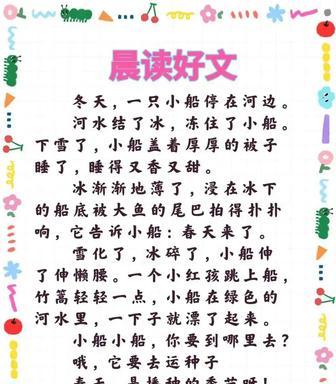 晨读好文
冬天，一只小船停在河边。
河水结了冰，冻住了小船。
下雪了，小船盖着厚厚的被子
睡了，睡得又香又甜。
冰渐渐地薄了，浸在冰下
的船底被大鱼的尾巴拍得扑扑
响，它告诉小船：春天来了。
雪化了，冰碎了，小船伸
了伸懒腰。一个小红孩跳上船，
竹篙轻轻一点，小船在绿色的
河水里，一下子就漂了起来。
小船小船，你要到哪里去？
哦，它要去运种子
春天，是播种的季节呀！